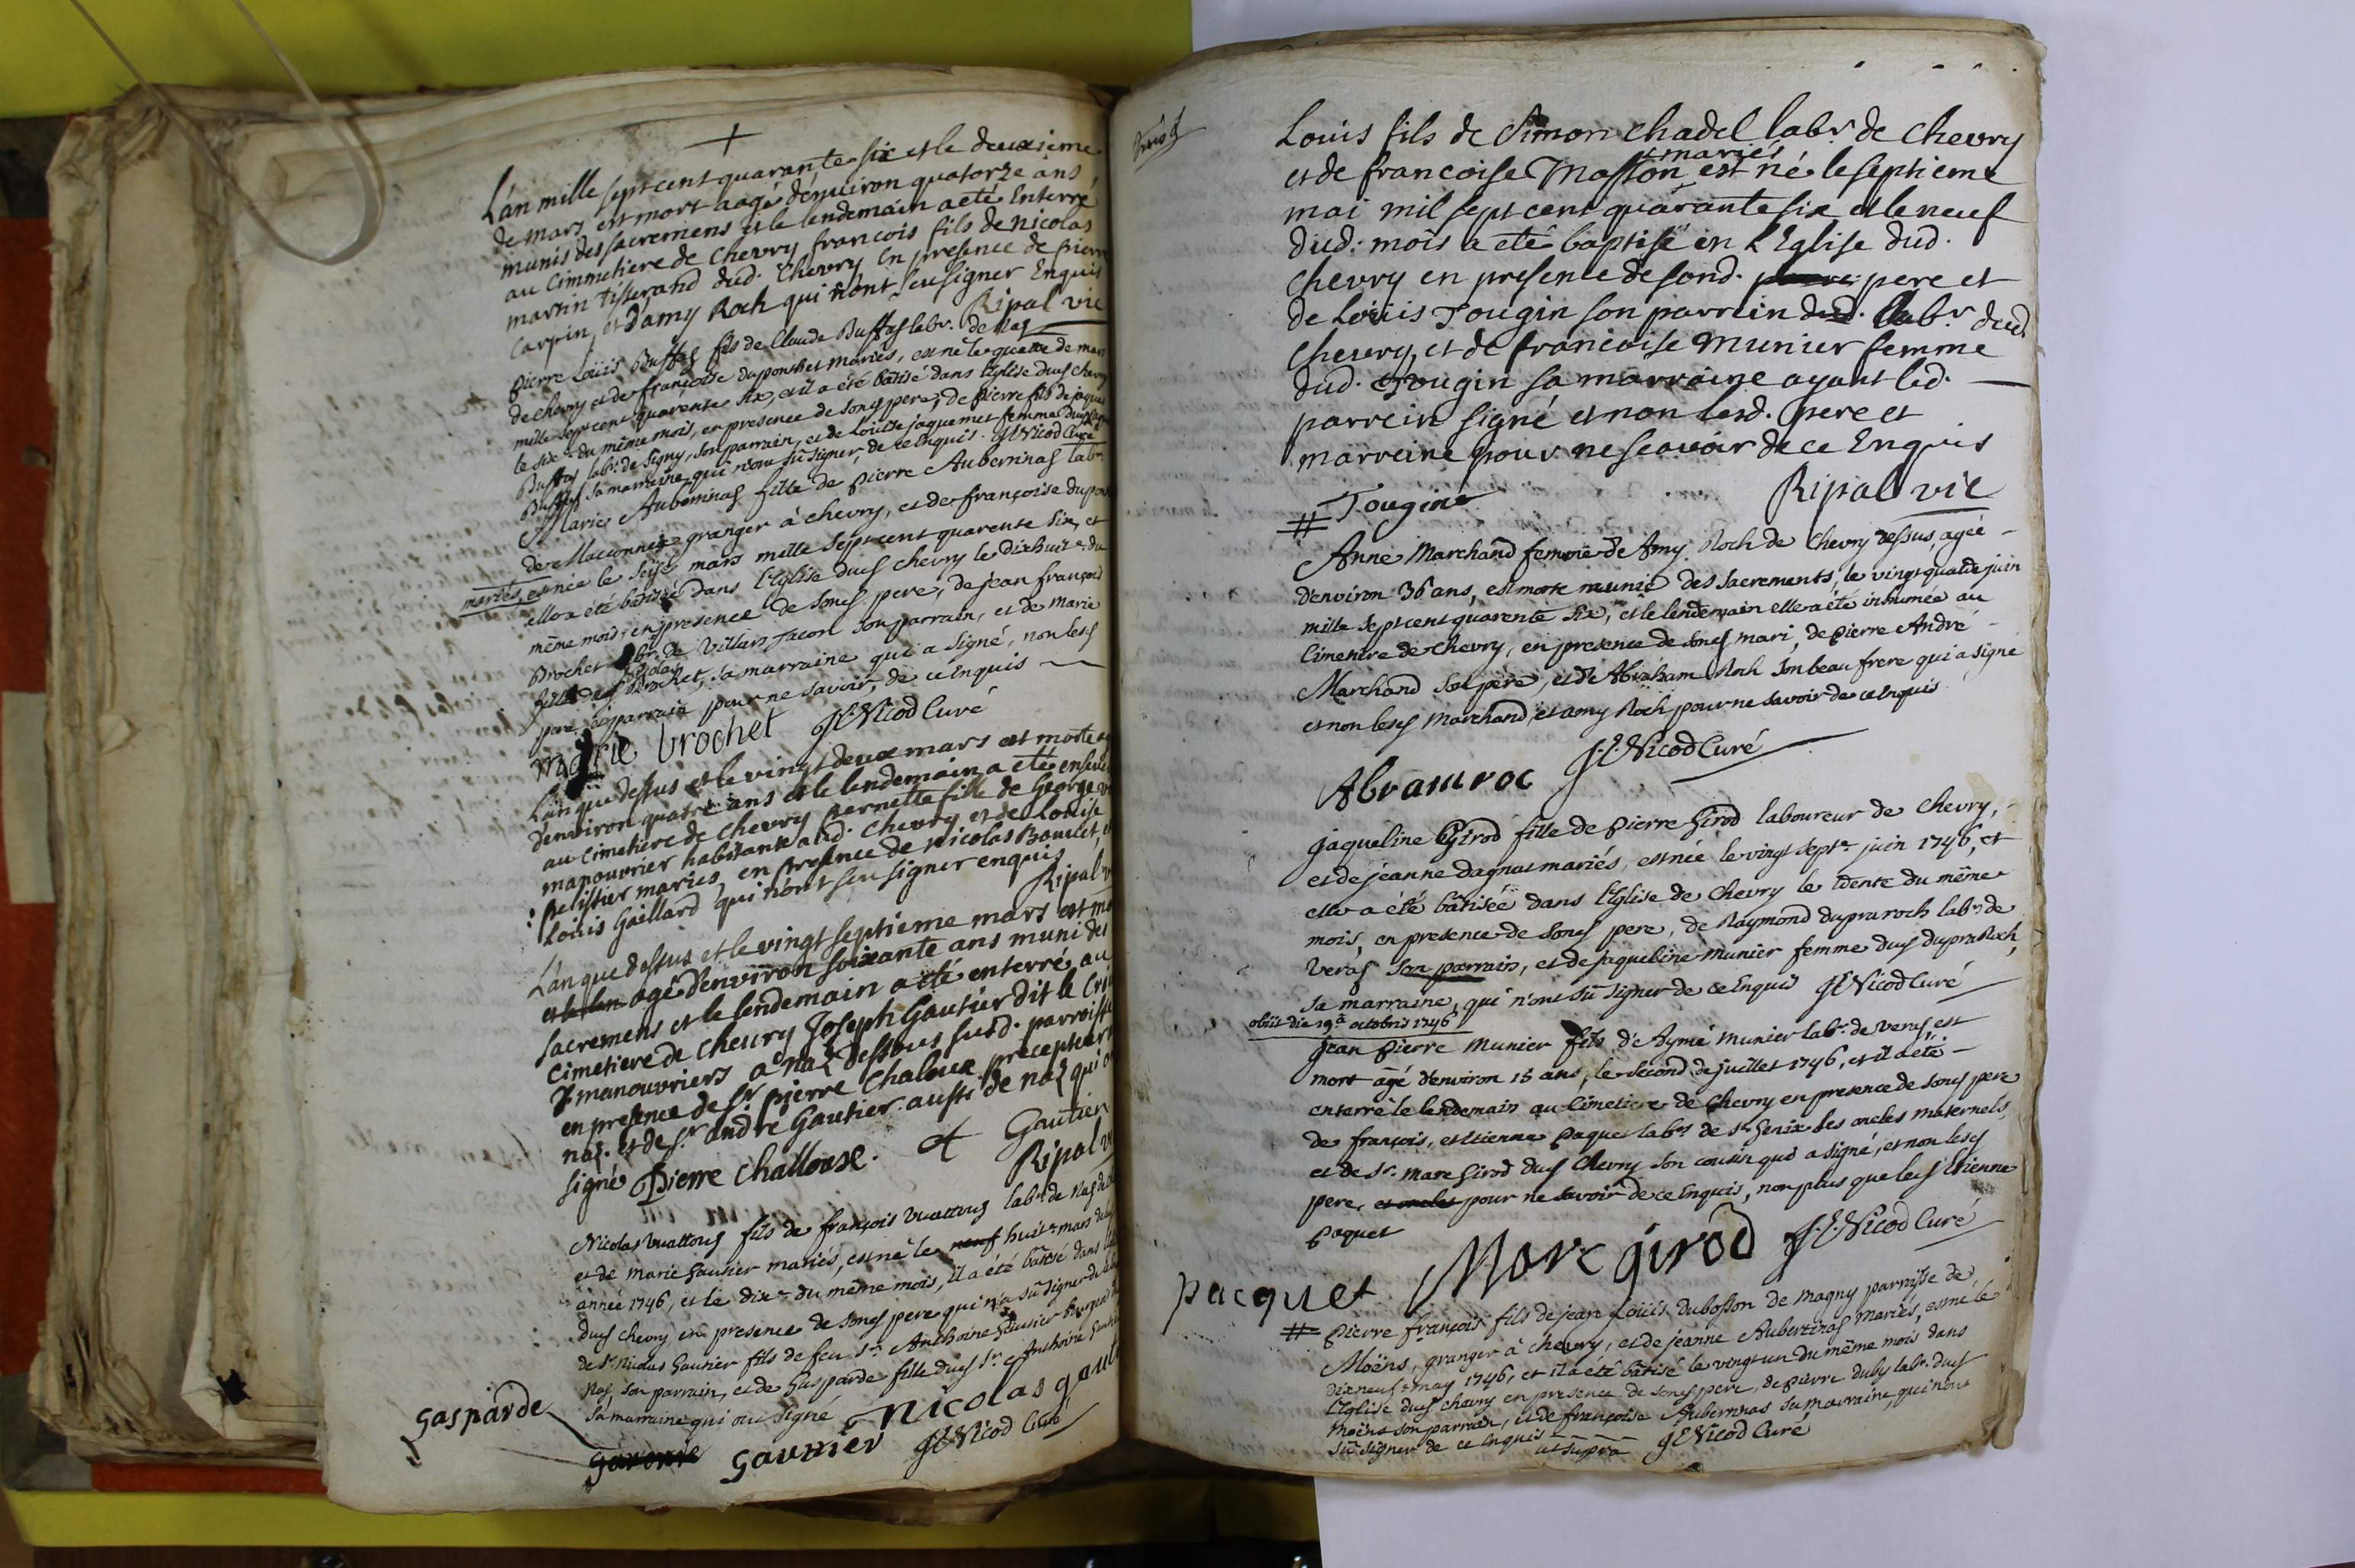 L'an mille sept cent quarante six et le deuxieme
de mars est mort aagé d'enuiron quatorze ans
munis des sacremens et le lendemain a eté Enterré
au Cimmetiere de Chevry francois fils de nicolas
martin tisserand dud. Chevry En presence de pierre
Carpin et d'amy Roch qui n'ont seu signer Enquis
Ripal vic
pierre Loüis Buffas fils de Claude Buffas labr. de Nas
de chevry et de françoise dupont mariés, est né le quatre de mars
mille sept cent quarente six, et il a été bâtisé dans l'Eglise dud Chevry
le six.e du même mois, en presence de sond pere, de pierre fils de jaques
Buffas labr. de Signy, son parrain, et de Loüise jaquemet femme dud
Buffas sa marraine, qui n'ont sû signer, de ce Enquis. JENicod Curé
Marie Aubeninas fille de pierre Aubeninas labr.
de Maconnex granger à chevry, et de françoise dupont
mariés, est née le seise mars mille sept cent quarente six, et
elle a été bâtisée dans l'Eglise dud chevry le dixhuit.e du
même mois, en presence de sond pere, de jean françois
Brochet labr. de Villars Tacon son parrain, et de Marie
fille dud Brochet, sa marraine qui a signé, non lesd
pere et parrain pour ne savoir, de ce Enquis
marie brochet JENicod Curé
L'an que dessus et le vingt deux mars est morte
d'environ quatre ans et le lendemain a eté enseveli
au cimetiere de chevry pernette fille de George
manouvrier habitant aud. chevry et de Louise
pelissier mariés, en presence de nicolas Bouclet, et
Louis Gaillard qui n'ont seu signer enquis
Ripal v
L'an que dessus et le vingt septieme mars est mo
et le len agé d'environ soixante ans muni des
sacremens et le lendemain a eté enterré au
cimetiere de cheury Joseph Gautier dit le
manouvriers a naz dessous susd. parroisse
en presence de Sr. pierre Chaloux precepteur
naz. et de Sr. andre Gautier aussi de naz qui o
signé Pierre Challoux. A Gautier
Ripal v
Nicolas vuattoug fils de françois vuattoug labr. de Nas
et de marie Gautier mariés, est né le neuf huit.e mars de
année 1746, et le dix.e du même mois, il a été bâtisé dans
dud chevry en presence de sond pere qui n'a sû signer de
de Sr. nicolas Gautier fils de feu Sr. Anthoine Gautier Bourgeois
Nas son parrain, et de Gasparde fille dud Sr. Anthoine Gautier
sa marraine qui ont signé nicolas gaut
gasparde gautier JENicod Curé
Louis fils de Simon chadel labr. de chevry
mariés
et de francoise Masson est né le septieme
mai mil sept cent quarante six et le neuf
dud. mois a eté baptisé en L'Eglise dud.
chevry en presence de sond. pere et
de Louis Tougin son parrein dud. labr. dud
chevry et de francoise Munier femme
dud. Tougin sa marraine ayant led.
parrein signé et non lesd. pere et
marreine pour ne scavoir de ce Enquis
# Tougin Ripal vic
Anne Marchand femme de Amy Roch de chevry dessus, agée
d'environ 36 ans, est morte munie des sacrements, le vingt quatre juin
mille sept cent quarente six, et le lendemain elle a été inhumée au
Cimetiere de chevry, en presence de sond mari, de pierre André
Marchand son pere, et d'Abraham Roch son beau frere qui a signé
et non lesd Marchand, et amy Roch pour ne savoir de ce Enquis
Abram roc J.E.Nicod Curé
jaqueline Girod fille de pierre Girod laboureur de chevry,
et de jeanne dagnat mariés, est née le vingt sept.e juin 1746, et
elle a été bâtisée dans l'Eglise de chevry le trente du même
mois, en presence de sond pere, de Raymond dupraroch labr. de
veras son parrain, et de jaqueline munier femme dud dupraRoch,
sa marraine, qui n'ont sû signer de ce Enquis JENicod Curé
obiit die 19a octobris 1746
Jean Pierre Munier fils d'Aymé Munier labr. de veras, est
mort âgé d'environ 15 ans, le second de juillet 1746, et il a été
enterré le lendemain au Cimetiere de Chevry en presence de sond pere
de françois, et Etienne Paquet labrs de St. Genix ses oncles maternels
et de Sr. Marc Girod dud Chevry son cousin qui a signé, et non lesd
pere, et oncles pour ne savoir de ce Enquis, non plus que led Etienne
Paquet
pacquet Marc girod J.E.Nicod Curé
# pierre françois fils de jean Loüis dubosson de magny parroisse de
Moëns, granger à chevry, et de jeanne Aubertinas mariés, est né le
dixneuf.e may 1746, et il a été bâtisé le vingt un du même mois dans
l'Eglise dud chevry en presence de sond pere, de pierre duby labr. dud
Moëns son parrain, et de françoise Auberninas sa marraine, qui n'ont
sû signer de ce Enquis ut supra JENicod Curé